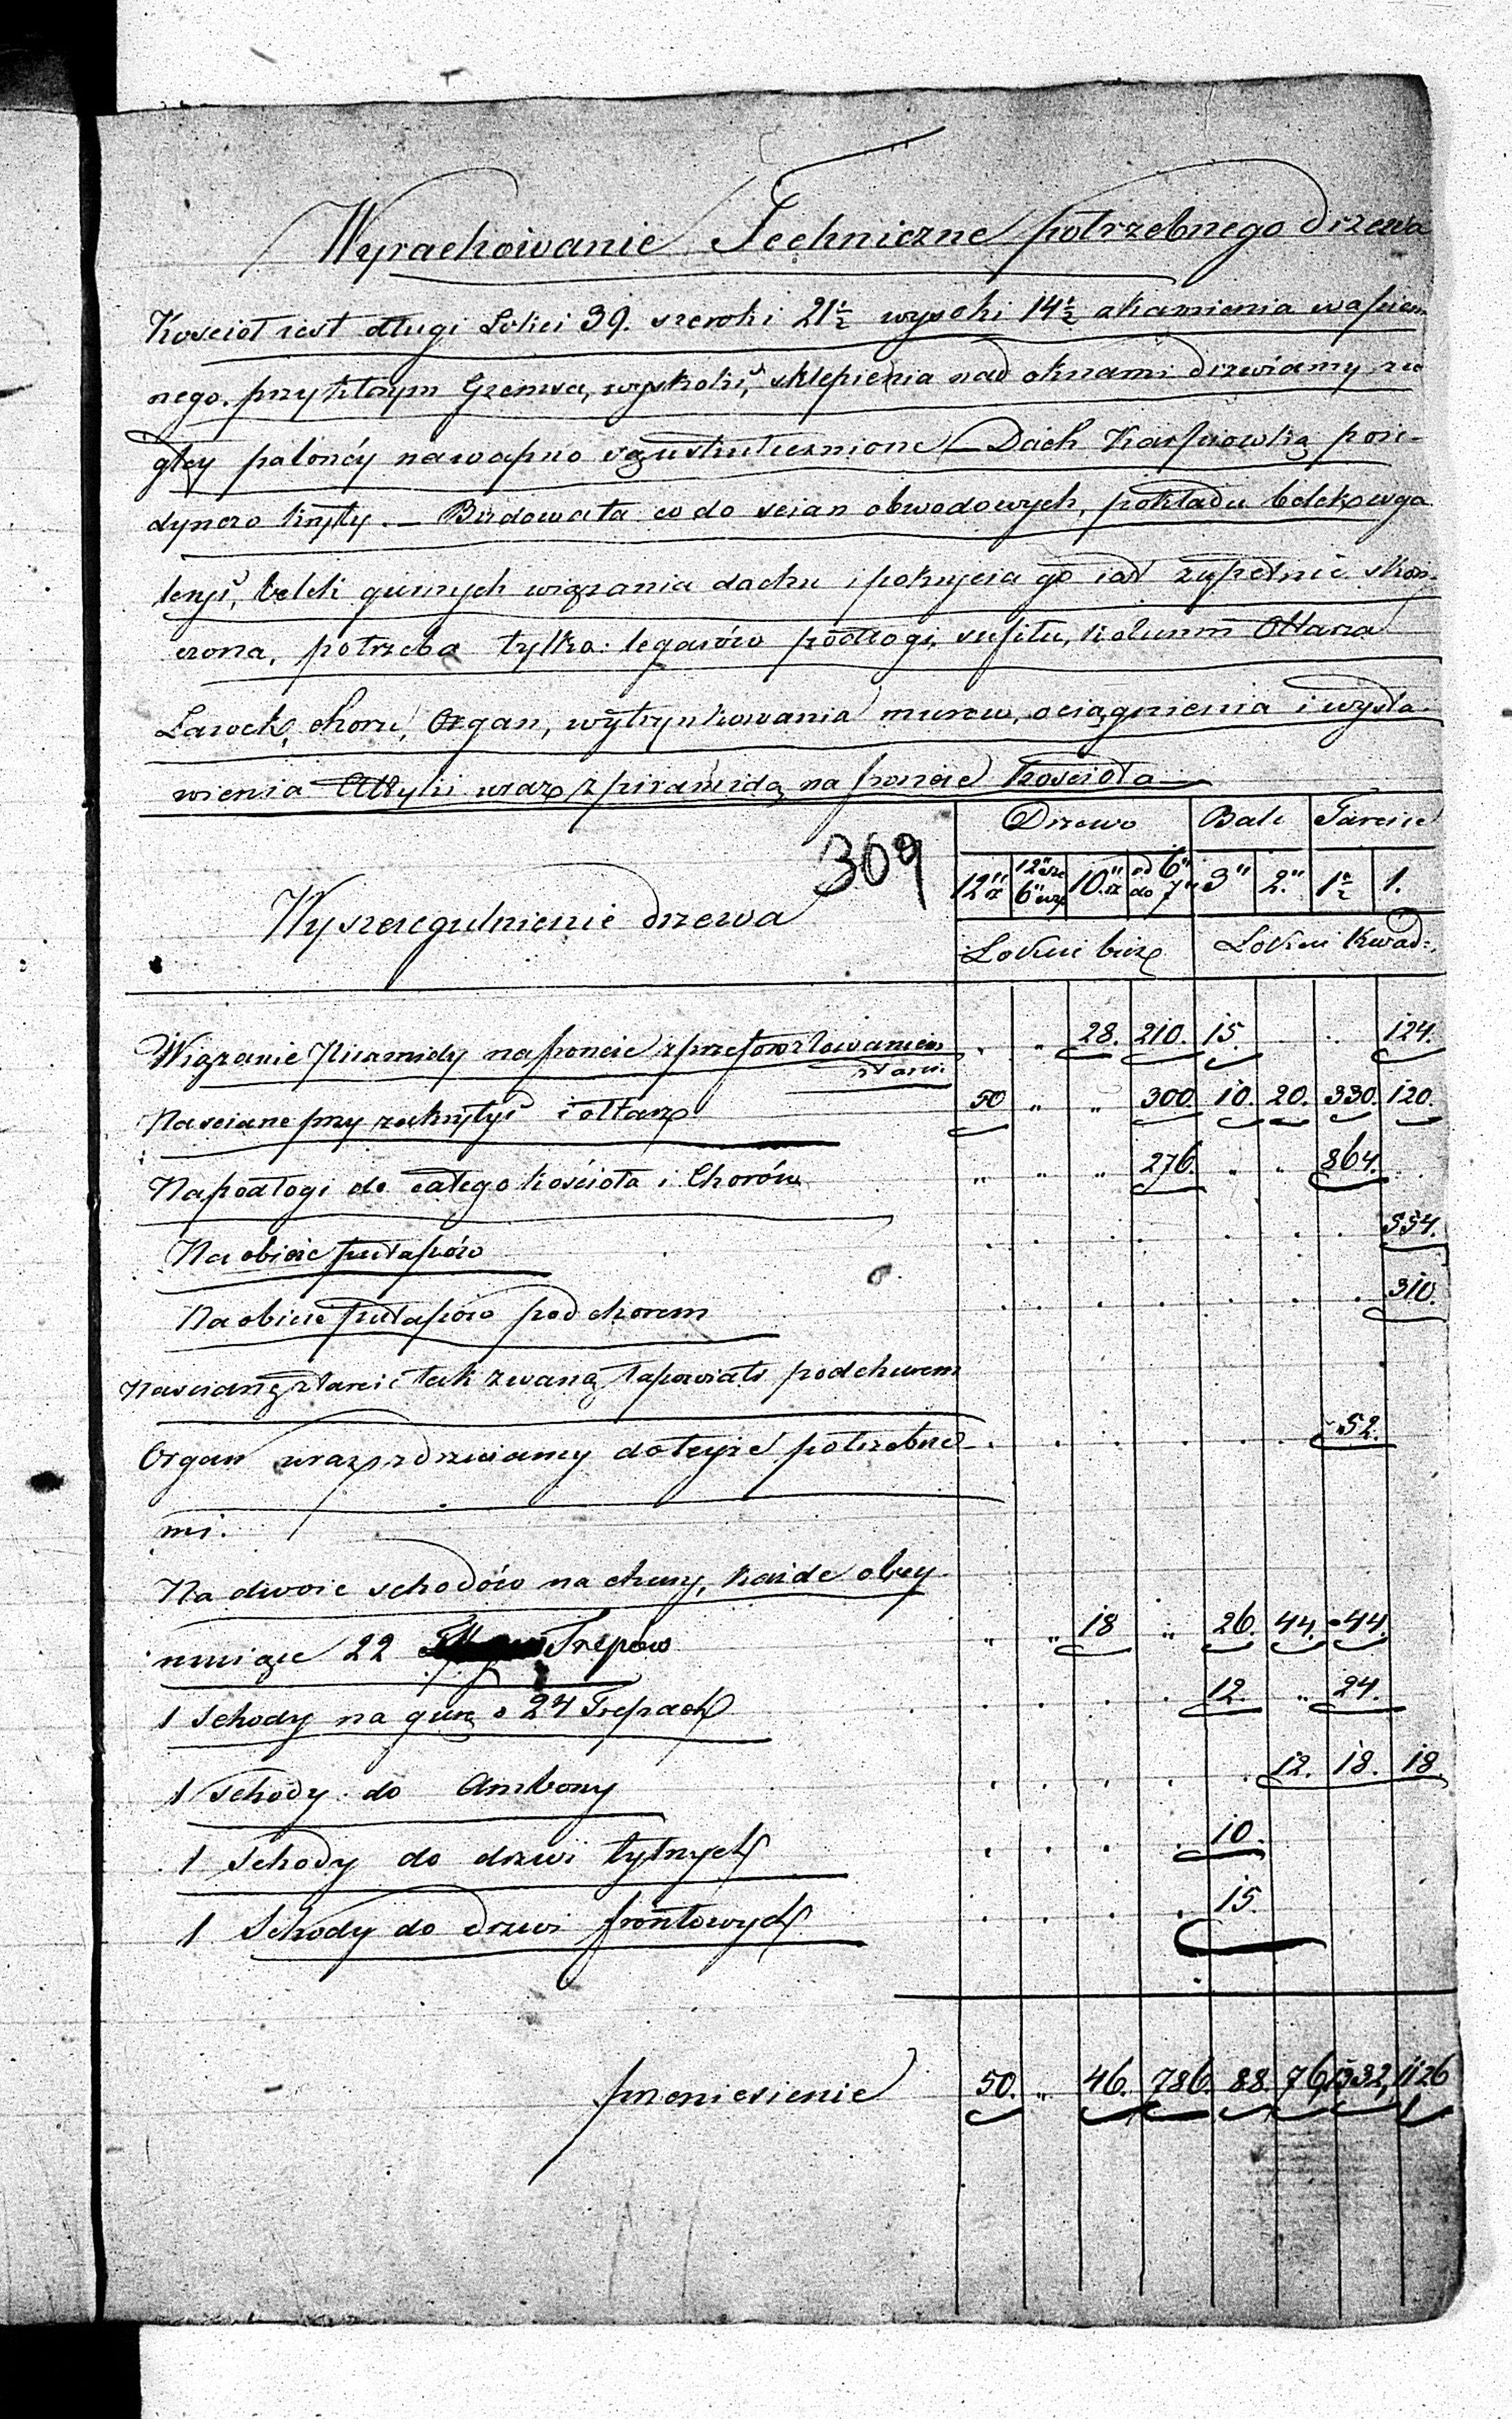 Wyrachowanie Techniczne potrzebnego drzewa
Kościoł iest długi Łokci 39. szeroki 21½ wysoki 14½ z kamienia wapien
nego. przy ktorym Gzemsa, wyskoki, sklepienia nad oknami drzwiamy, z ce
gły paloncy na wapno są uskutecznione – Dach Karpiowką poie-
dynczo kryty. – Budowała co do scian obwodowych, pokładu belkowga
belek gurnych wiązania dachu i pokrycia go iest zupełnie skoń-
czona, potrzeba tylko: legarów podłogi, sufitu, kolumn Ołtarza
Ławek, choru, Organ, wytrynkowania murow, ociągnienia i wysta-
wienia Attyki wraz z piramidą na froncie Kościoła
Drzewo Bale Tarcice
309
12" 12" 6" 10" od 6" do 7" 3" 2." 1½ 1.
Wyszczegulnienie drzewa
Łokci bież Łokci kwad:
Wiązanie Piramidy na froncie z przefowrtowaniem . „ 28. 210. 15. . .. 124.
z tarci.
Na sciane przy zakrytyi i ołtarz 50 „ „ 300 10. 20. 330. 120.
Na podłogi do całego kościoła i Chorów „ „ „ 276. „ „ 864. .
Na obicie pułapów . . . . . . . 554.
Na obicie pułapów pod chorem . . . . . . . 310.
Na scianę z tarcic tak zwaną pod chorem
Organ wraz z drzwiamy do tejże potrzebne- . . . . . . 52.
mi.
Na dwoie schodów na chury, każde obey
muiące 22 Trepow „ „ 18 „ 26. 44. 44.
1 Schody na gurę o 24 Trepach . . . . 12. „ 24.
1 Schody do Ambony . . . . . 12. 18. 18
1 Schody do drzwi tylnych . . . . 10.
1 Schody do drzwi frontowych . . . . 15.
przeniesienie 50. „ 46. 786. 88. 76, 1332, 1126